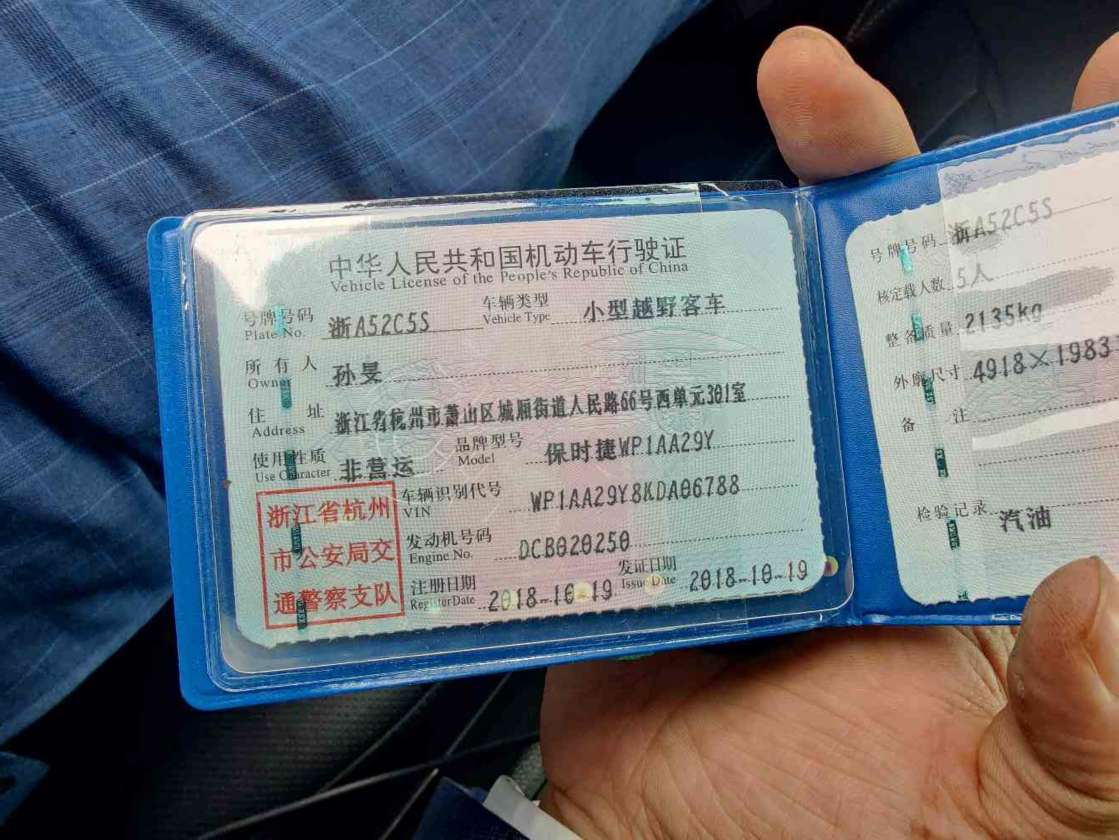 中华人民共和国机动车行驶证
Vehicle License of the People's Republic of China
号牌号码 浙A52C5S 车辆类型 小型越野客车
Plate No. Vehicle Type
所有人 孙旻
Owner
住址 浙江省杭州市萧山区城厢街道人民路66号西单元301室
Address
使用性质 非营运 品牌型号 保时捷WP1AA29Y
Use Character Model
浙江省杭州
市公安局交
通警察支队
车辆识别代号 WP1AA29Y8KDA06788
VIN
发动机号码 DCB020250
Engine No.
注册日期 2018-10-19 发证日期 2018-10-19
Register Date Issue Date
号牌号码 浙A52C5S
核定载人数 5人
整备质量 2135kg
外廓尺寸 4918×1983
备注
检验记录 汽油